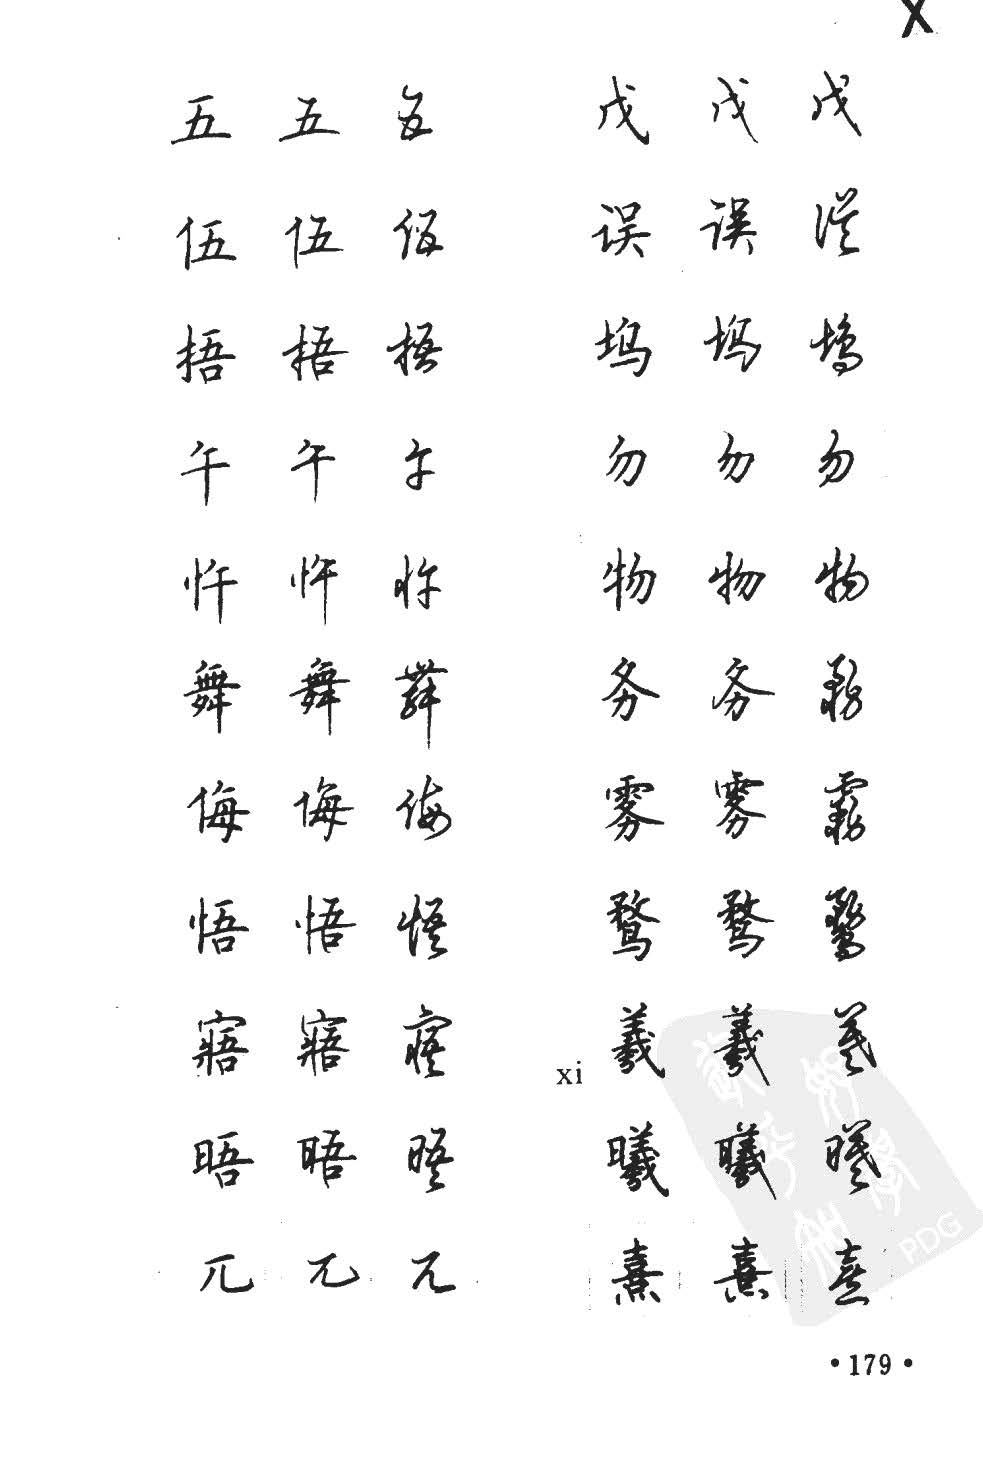 X
五 五 五 戊 戊 戊
伍 伍 伍 误 误 误
捂 捂 捂 坞 坞 坞
午 午 午 勿 勿 勿
忤 忤 忤 物 物 物
舞 舞 舞 务 务 務
侮 侮 侮 雾 雾 霧
悟 悟 悟 鹜 鹜 鶩
寤 寤 寤 xi 羲 羲 羲
晤 晤 晤 曦 曦 曦
兀 兀 兀 熹 熹 熹
PDG
·179·